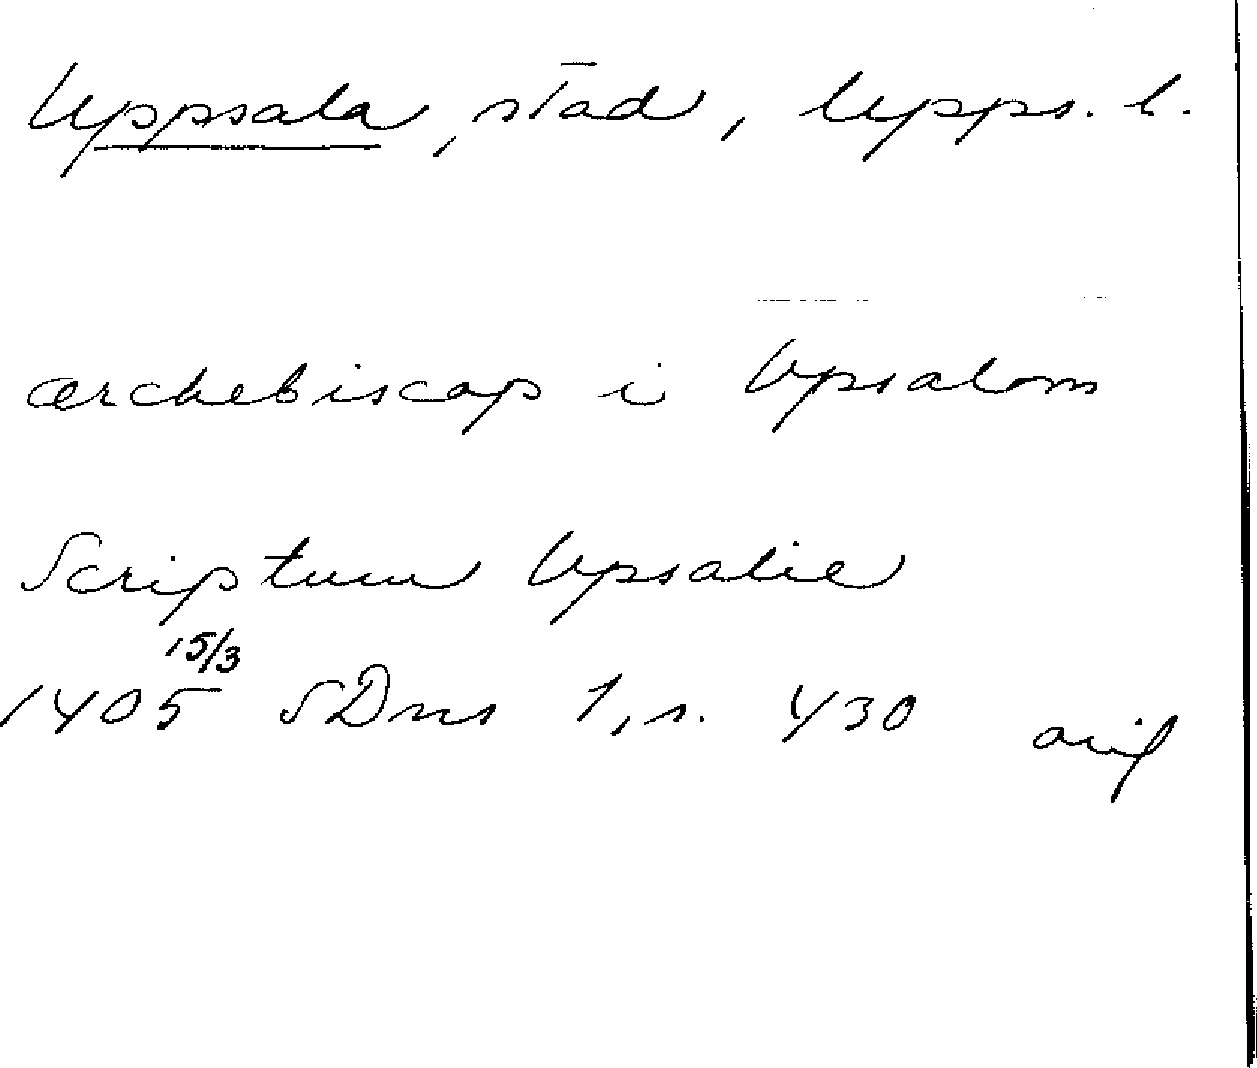 Uppsala, stad, Upps. l.
ærchebiscop i Vpsalom
Scriptum Vpsalie
15/3
1405 SDns 1, s. 430 avif